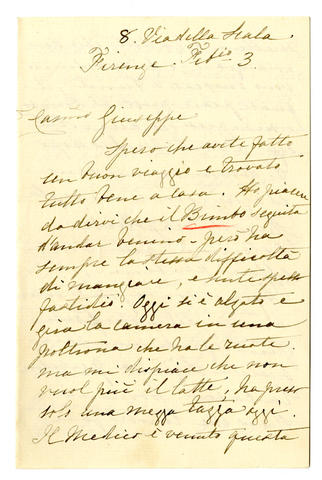 8. Via della Scala.
Firenze. Feb.io 3.
Carmo Giuseppe
Spero che avete fatto
un buon viaggio e trovato
tutto bene a casa. Ho piacere
da dirvi che il Bimbo seguita
d'andar benino - però ha
sempre la stessa difficoltà
di mangiare, e sente spesso
fastidio. Oggi si è alzato e
gira la camera in una
poltrona che ha le ruote.
ma mi dispiace che non
vuol più il latte, ha preso
solo una mezza tazza oggi.
Il Medico è venuto questa